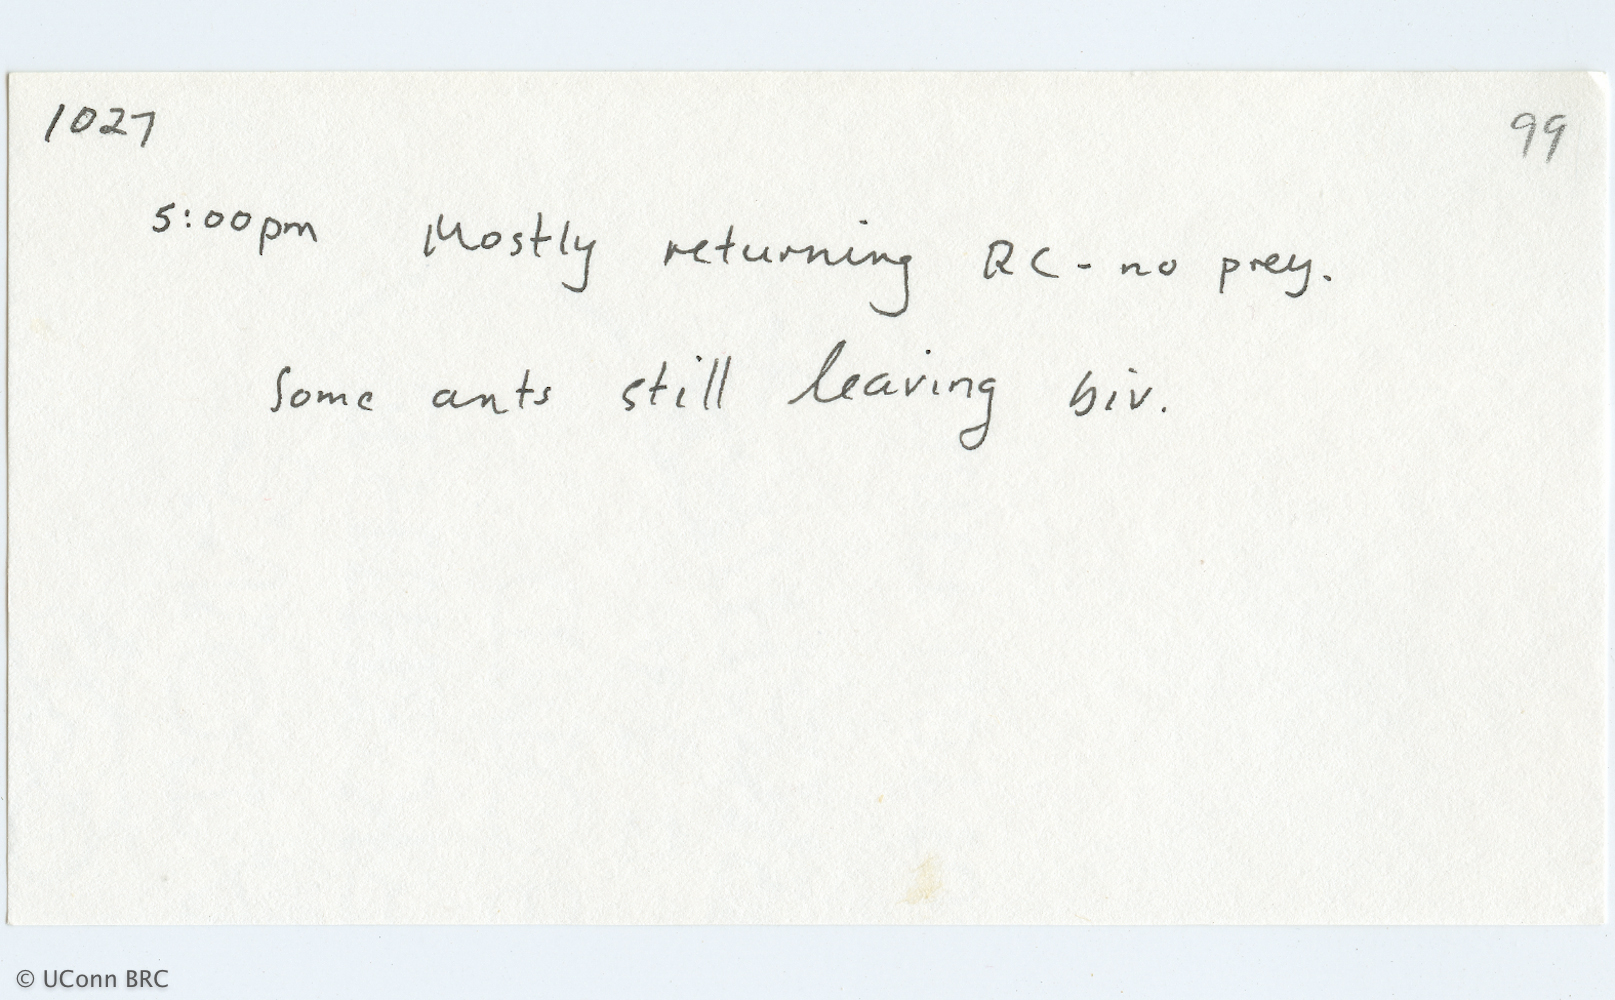 1027
99
5:00pm Mostly returning RC - no prey.
Some ants still leaving biv.
© UConn BRC